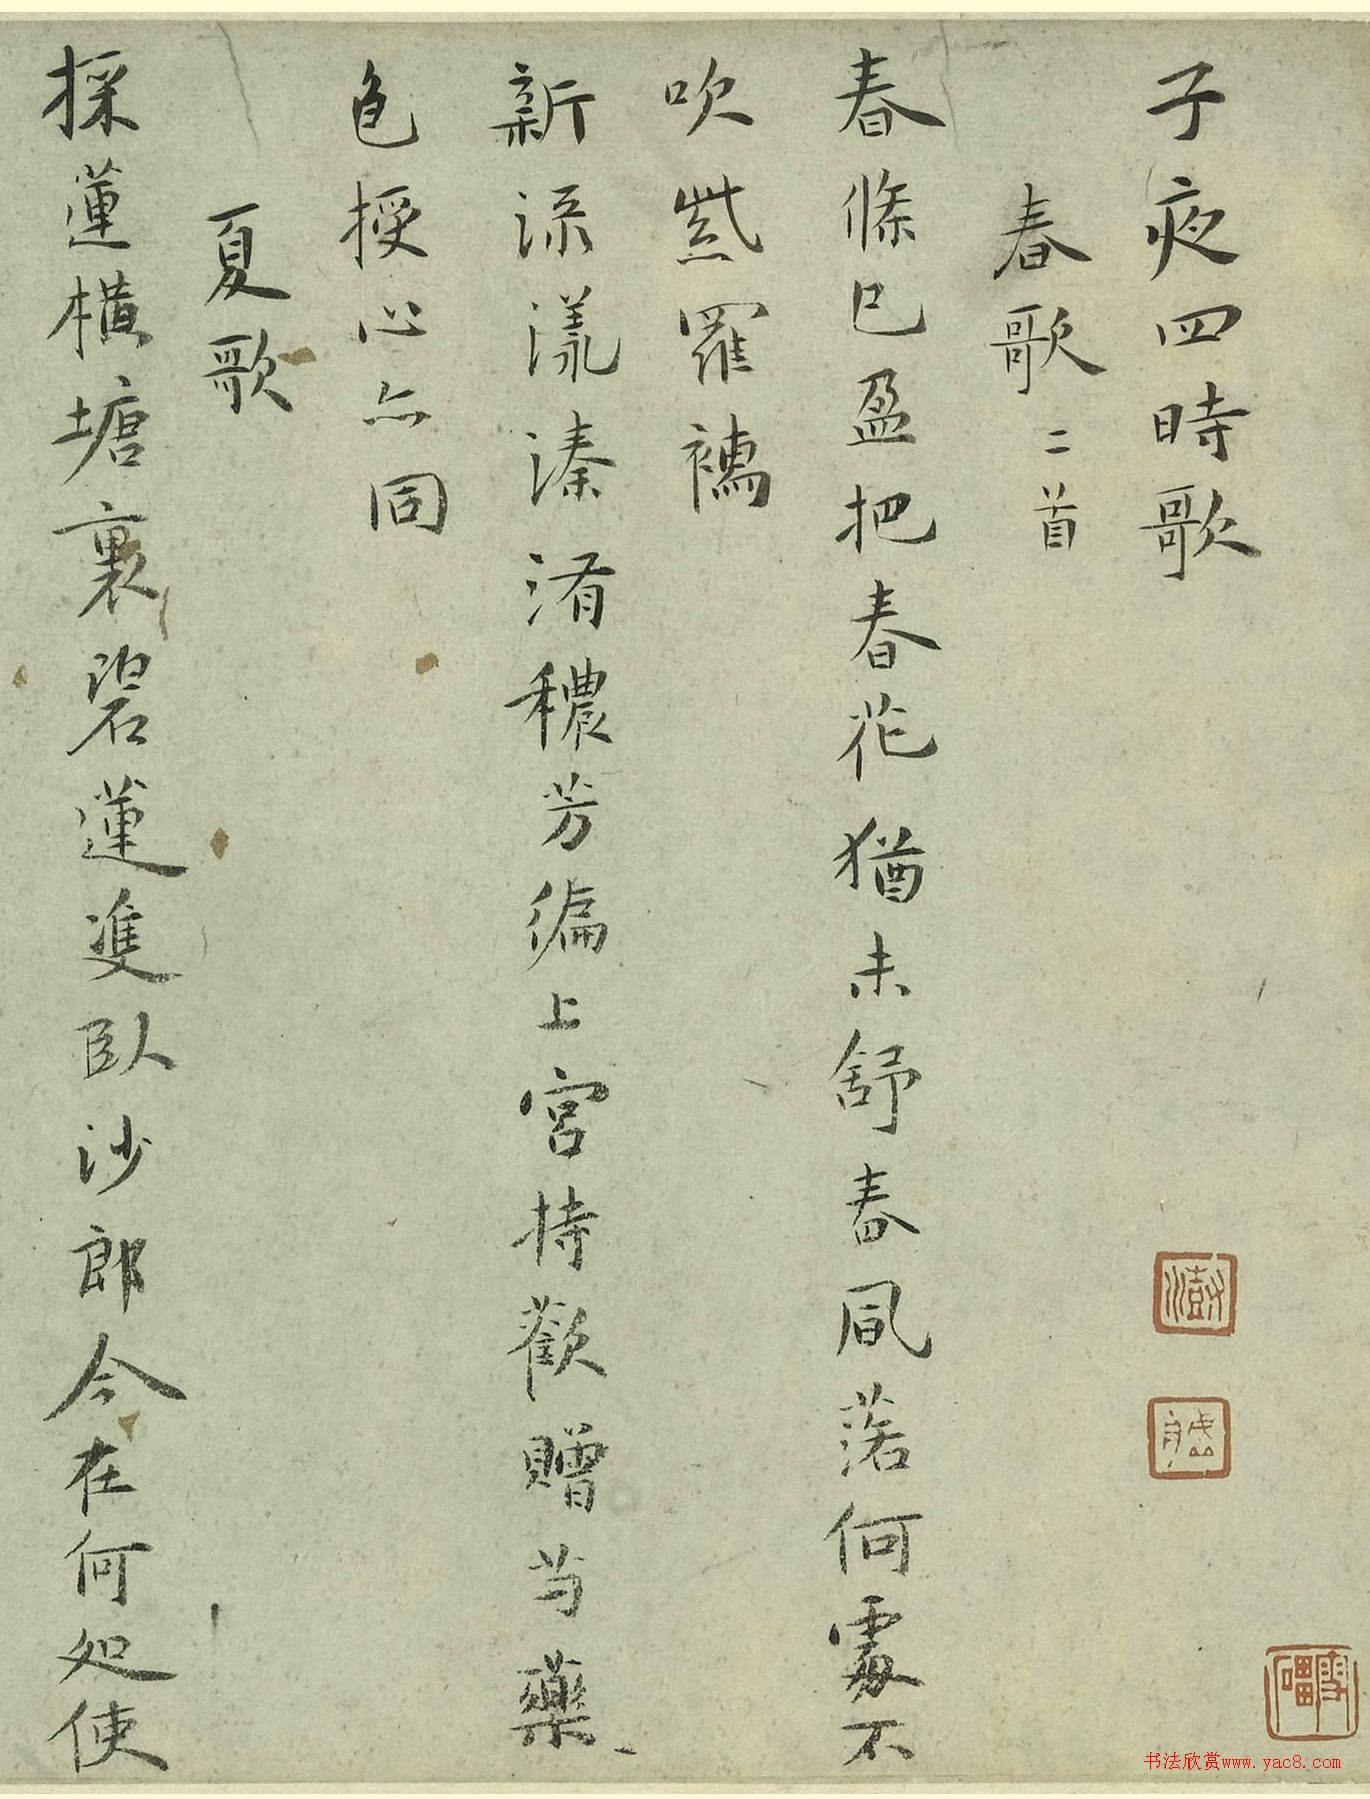 子夜四時歌
春歌 二首
春條已盈把春花猶未舒春風落何處不
吹紫羅襦
新流漾溱洧穠芳徧上宮持歡贈芍藥
色授心亦同
夏歌
採蓮橫塘裏碧蓮雙臥沙郎今在何處使
书法欣赏www.yac8.com